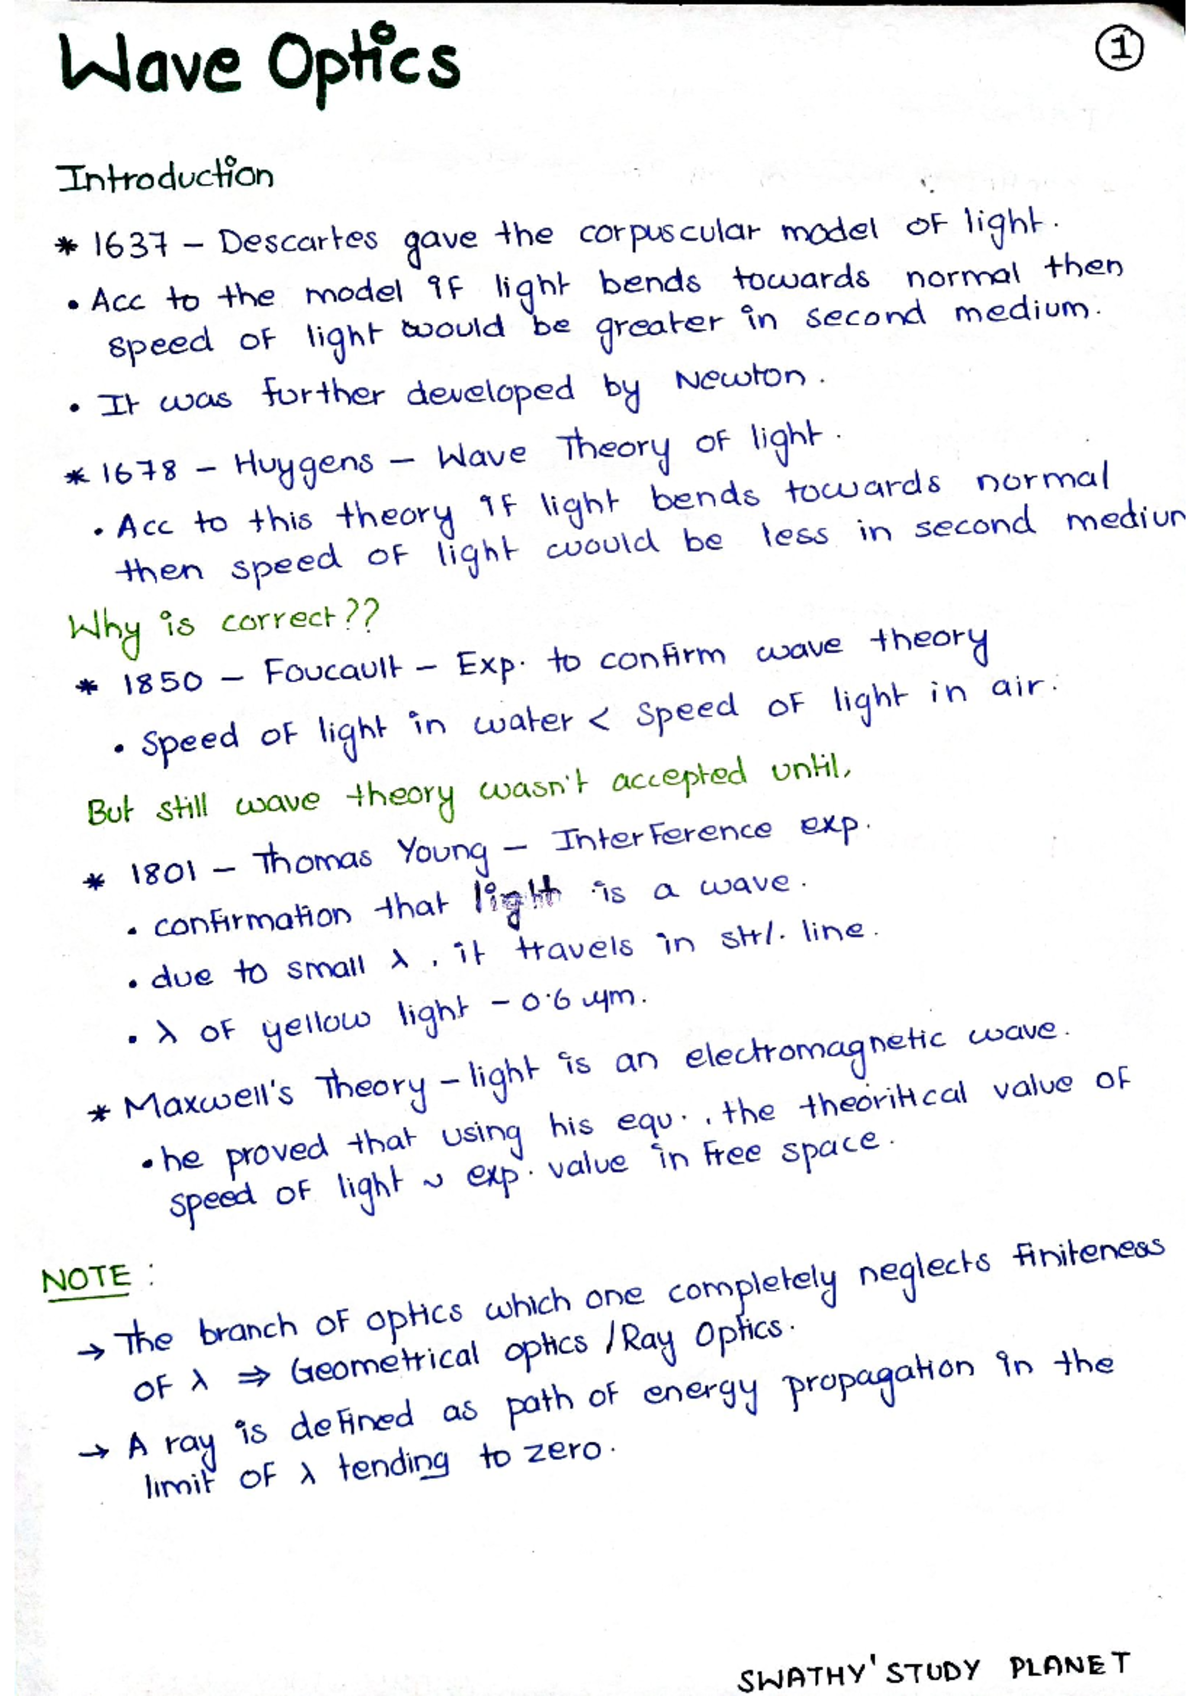 Wave Optics
1
Introduction
* 1637 - Descartes gave the corpuscular model of light.
• Acc to the model if light bends towards normal then
speed of light would be greater in second medium.
• It was further developed by Newton.
* 1678 - Huygens - Wave Theory of light.
• Acc to this theory if light bends towards normal
then speed of light would be less in second mediu
Why is correct??
* 1850 - Foucault - Exp. to confirm wave theory
• Speed of light in water < speed of light in air.
But still wave theory wasn't accepted until,
* 1801 - Thomas Young - Interference exp.
• confirmation that light is a wave.
• due to small λ, it travels in st./. line.
• λ of yellow light - 0.6 μm.
* Maxwell's Theory - light is an electromagnetic wave.
• he proved that using his equ., the theoritical value of
speed of light ~ exp. value in free space.
NOTE :
→ The branch of optics which one completely neglects finiteness
of λ ⇒ Geometrical optics / Ray Optics.
→ A ray is defined as path of energy propagation in the
limit of λ tending to zero.
SWATHY'STUDY PLANET